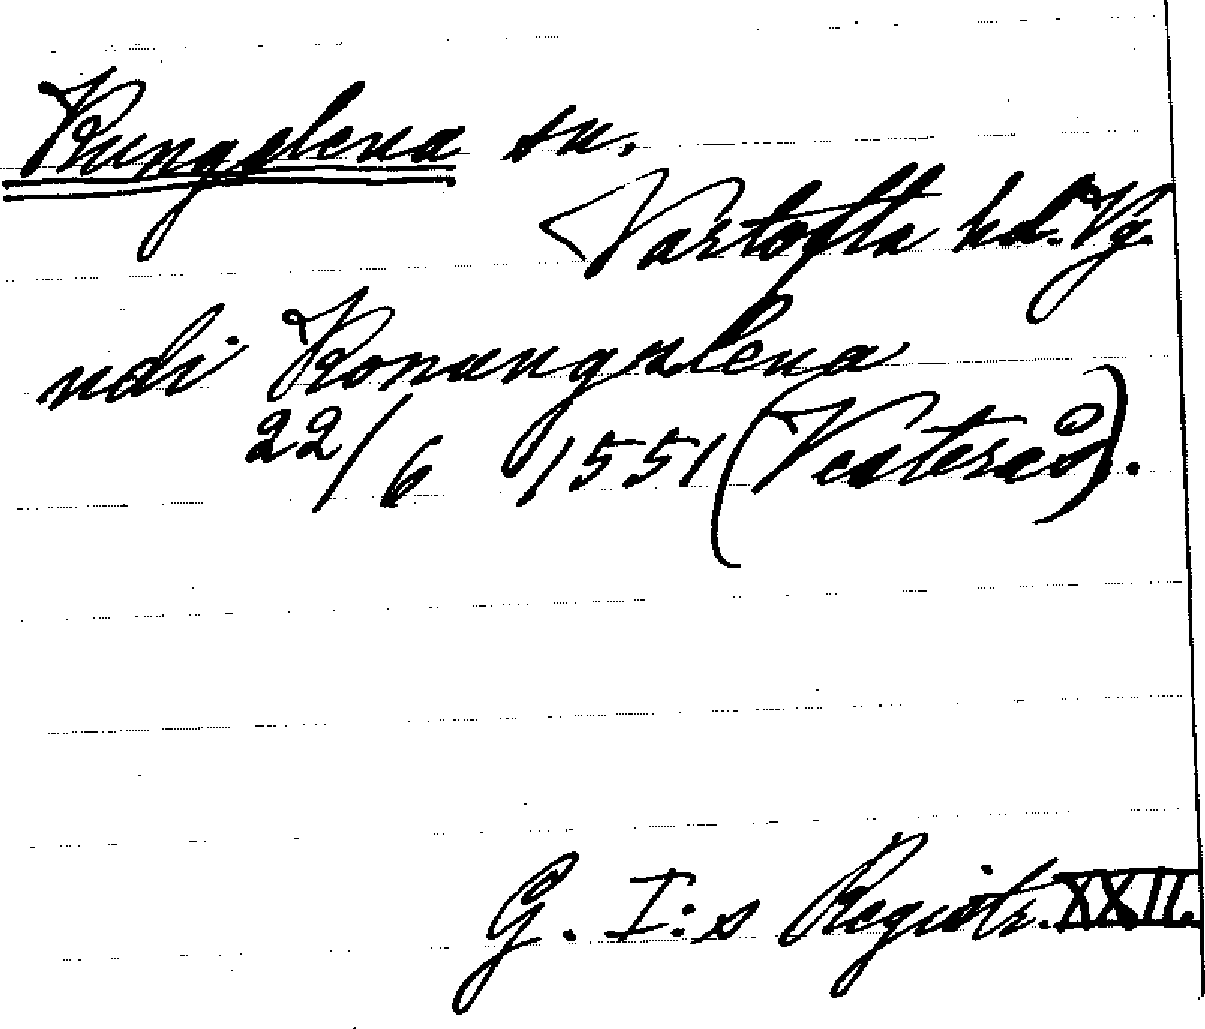 Kungslena sn.
Vartofta hd. Vg.
udi Konungxlena
22/6 1551 (Vesterås).
G. I:s Registr. XXII.